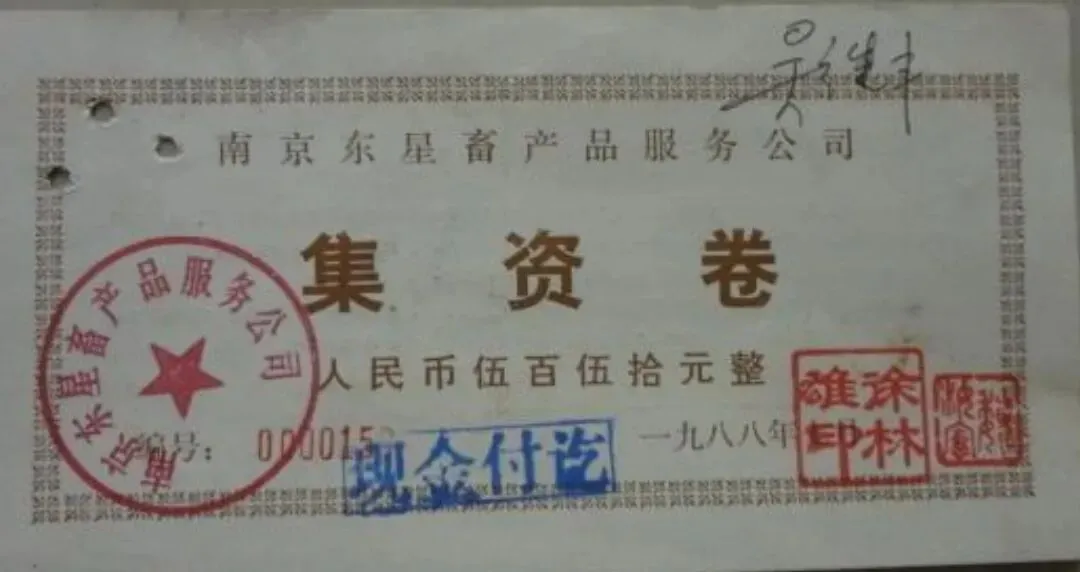 南京东星畜产品服务公司
集资卷
人民币伍百伍拾元整
编号: 000015
一九八八年
南京东星畜产品服务公司
现金付讫
徐林
雄印